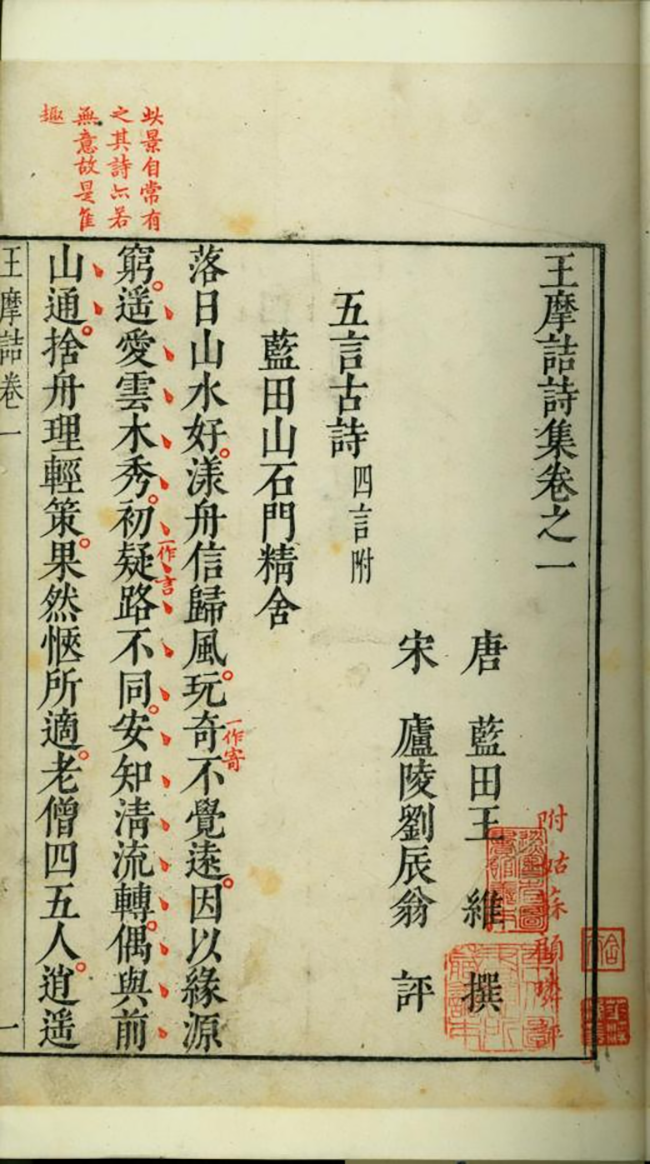 王摩詰詩集卷之一
唐　藍田王　維　撰
宋　廬陵劉辰翁　評
附姑蘇顧璘評
五言古詩 四言附
藍田山石門精舍
落日山水好。漾舟信歸風。玩奇不覺遠。因以緣源
一作寄
窮。遥愛雲木秀。初疑路不同。安知清流轉。偶與前
一作言
山通。捨舟理輕策。果然愜所適。老僧四五人。逍遥
此景自常有
之其詩亦若
無意故是佳
趣
王摩詰卷一
一